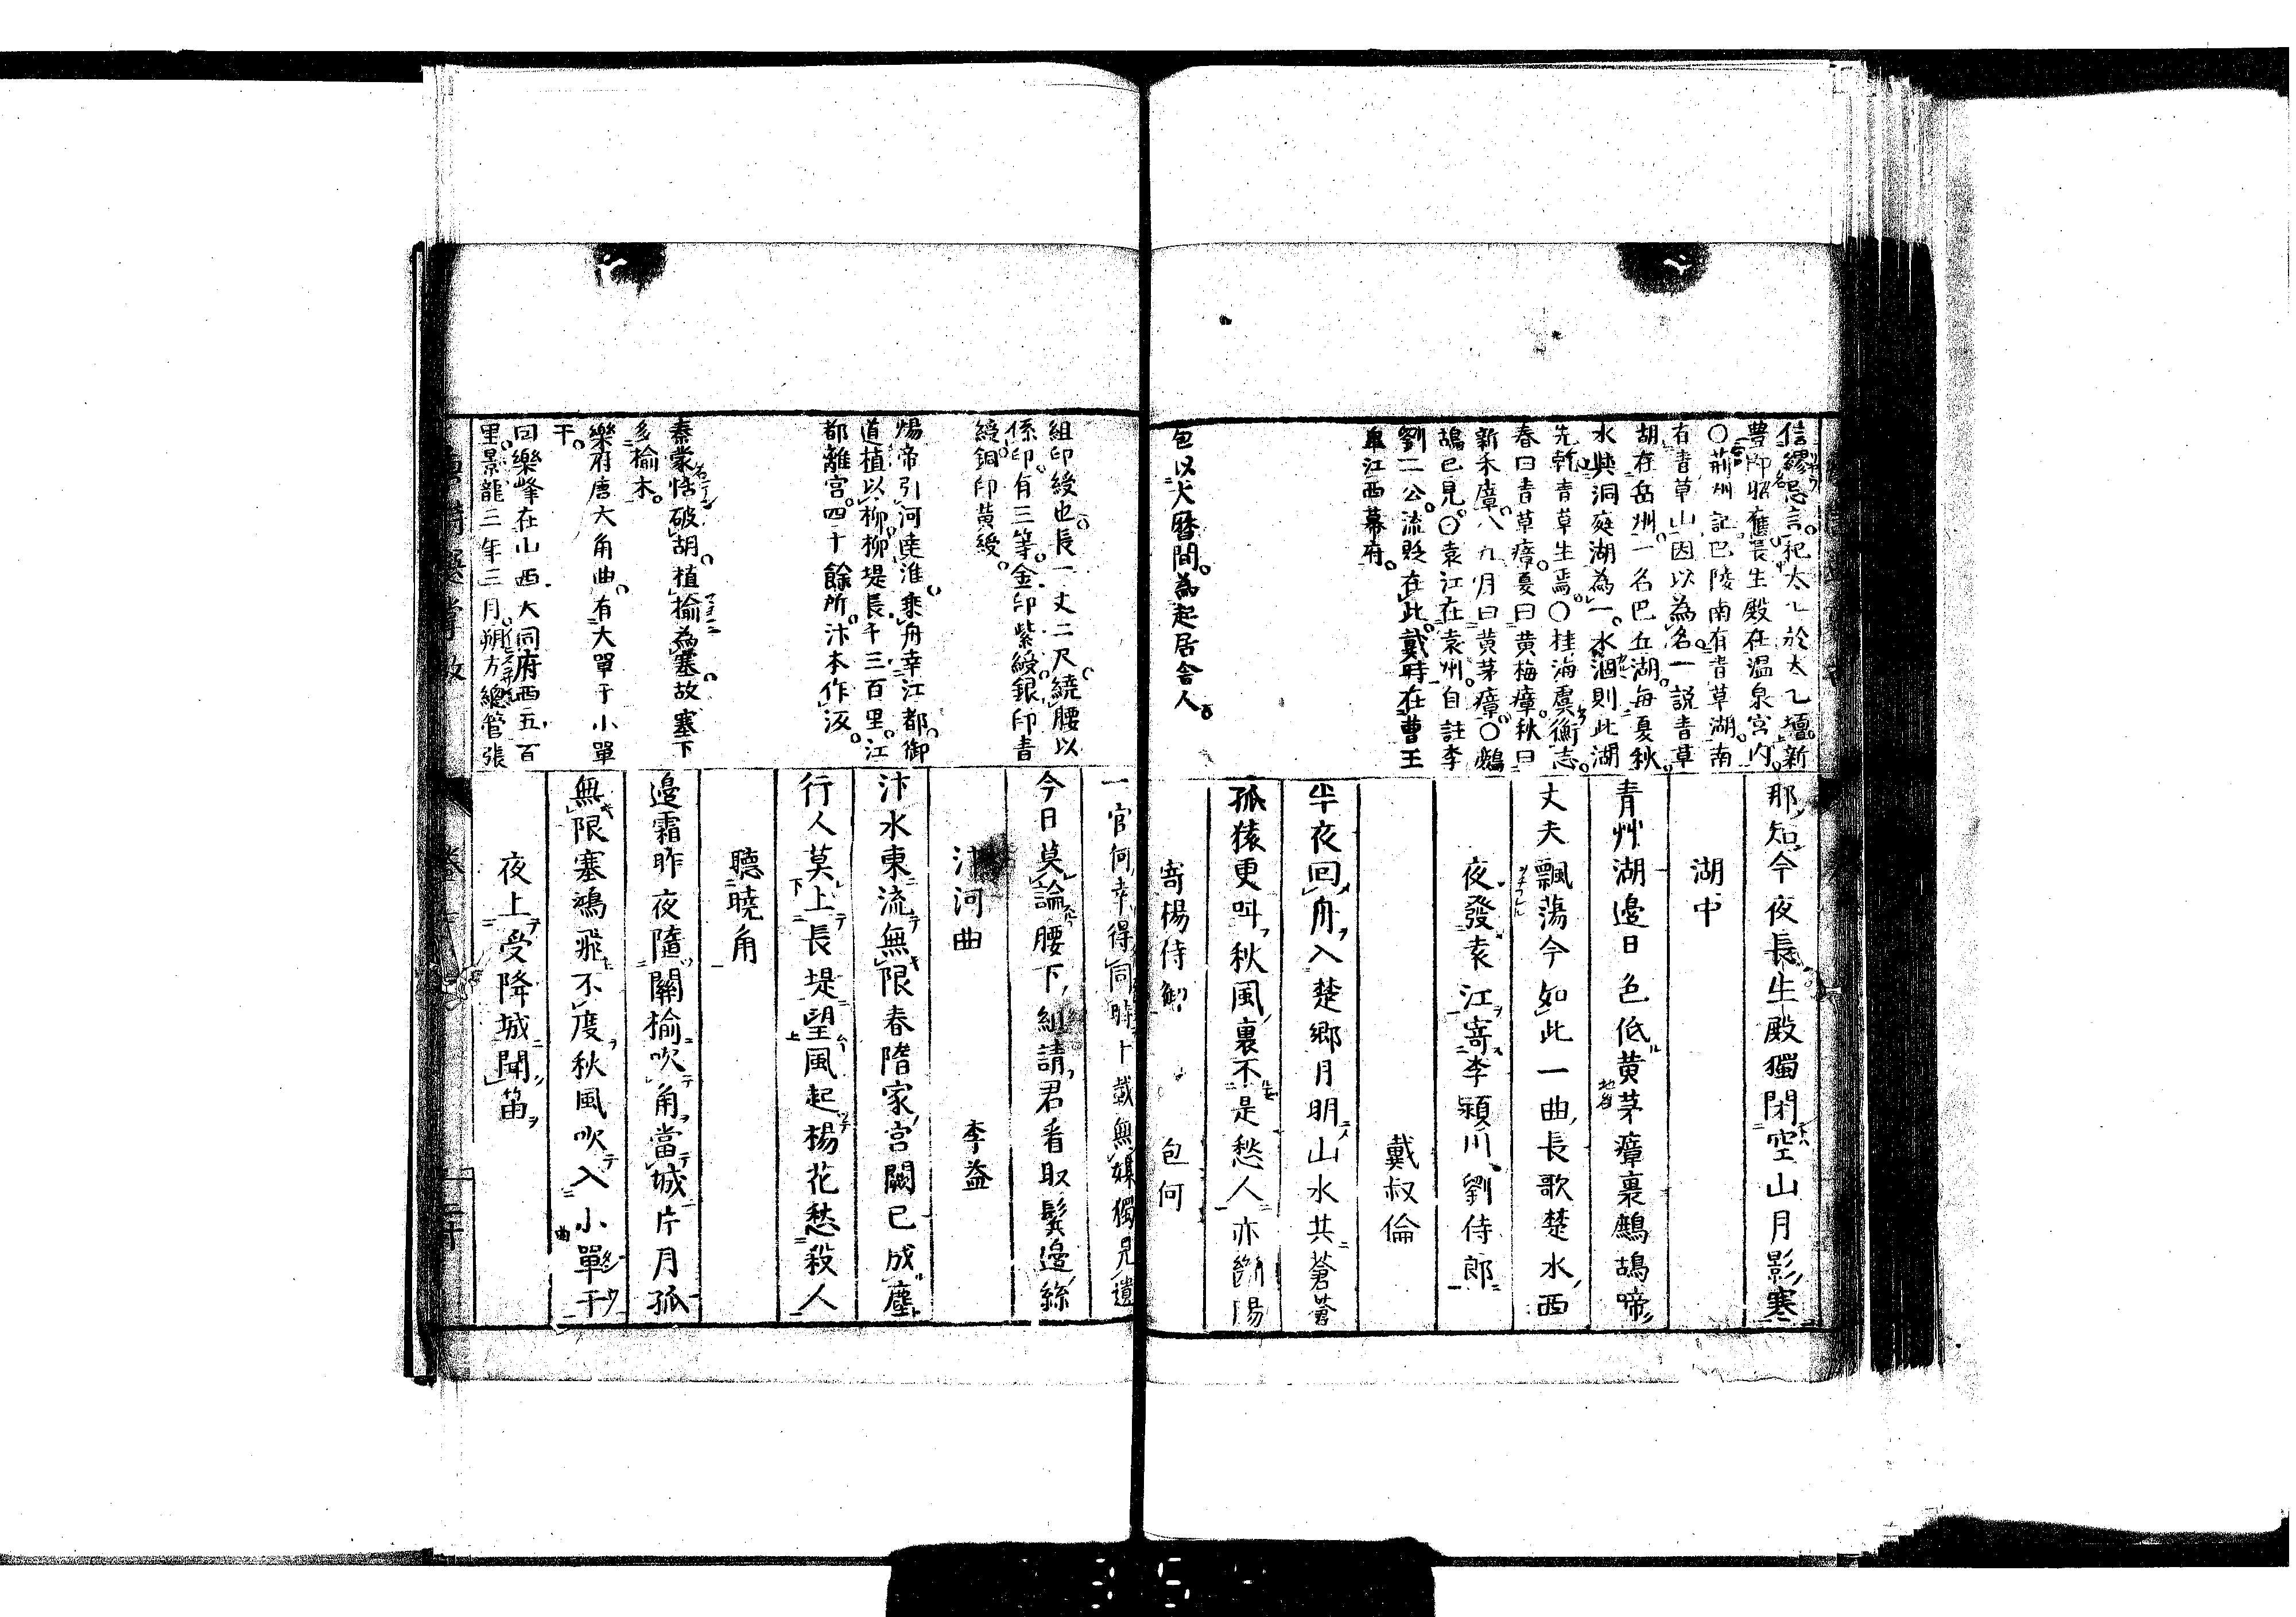 信繆忌言祀太乙於太乙壇新
豊即昭應長生殿在温泉宮内
○荊州記巴陵南有青草湖南
有青草山因以為名一説青草
胡在岳州一名巴丘湖每夏秋
水與洞庭湖為一水涸則此湖
先乾青草生焉○桂海虞衡志
春曰青草瘴夏曰黄梅瘴秋曰
新禾瘴八九月曰黄茅瘴○鷓
鴣已見○袁江在袁州自註李
劉二公流貶在此戴時在曹王
皐江西幕府
包以大暦間為起居舍人
那知今夜長生殿獨閉空山月影寒
湖中
青艸湖邊日色低黄茅瘴裏鷓鴣啼
丈夫飄蕩今如此一曲長歌楚水西
夜發袁江寄李潁川劉侍郎
戴叔倫
半夜回舟入楚郷月明山水共蒼蒼
孤猿更叫秋風裏不是愁人亦斷腸
寄楊侍御 包何
組印綬也長一丈二尺繞腰以
係印有三等金印紫綬銀印青
綬銅印黄綬
煬帝引河達淮乘舟幸江都御
道植以柳柳堤長千三百里江
都離宮四十餘所汴本作汳
秦蒙恬破胡植榆為塞故塞下
多榆木
樂府唐大角曲有大單于小單
于
回樂峰在山西大同府西五百
里景龍三年三月朔方總管張
一官何幸得同時十載無媒獨見遺
今日莫論腰下組請君看取鬢邊絲
汴河曲 李益
汴水東流無限春隋家宮闕已成塵
行人莫上長堤望風起楊花愁殺人
聽曉角
邊霜昨夜隨關榆吹角當城片月孤
無限塞鴻飛不度秋風吹入小單于
夜上受降城聞笛